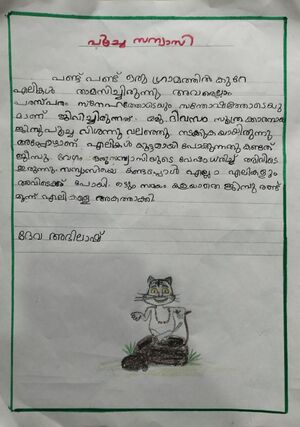 പൂച്ച സന്യാസി
പണ്ട് പണ്ട് ഒരു ഗ്രാമത്തിൽ കുറേ
എലികൾ താമസിച്ചിരുന്നു. അവരെല്ലാം
പരസ്പരം സ്നേഹത്തോടെയും സന്തോഷത്തോടെയു
മാണ് ജീവിച്ചിരുന്നത്. ഒരു ദിവസം സൂത്രക്കാരനായ
ജിമ്പുപൂച്ച വിശന്നു വലഞ്ഞു നടക്കുകയായിരുന്നു
അപ്പോഴാണ് എലികൾ കൂട്ടമായി പോകുന്നത് കണ്ടത്
ജിമ്പു വേഗം സന്യാസിയുടെ വേഷം ധരിച്ച് അവിടെ
ഇരുന്നു. സന്യാസിയെ കണ്ടപ്പോൾ എല്ലാ എലികളും
അവിടേക്ക് പോയി. ഒട്ടും സമയം കളയാതെ ജിമ്പു രണ്ട്
മൂന്ന് എലികളെ അകത്താക്കി.
ദേവ അഭിലാഷ്